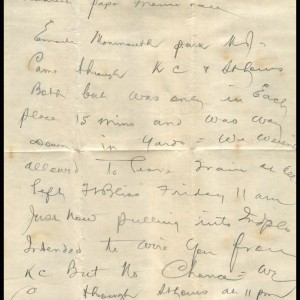 Enroute Monmouth park N.J -
Came through K C & St Louis
Both but was only in Each
place 15 mins and was way
down in Yards = We weren't
allowed to leave train at all
Left Ft Bliss Friday 11 am
Just Now pulling into Indpls
Intended to wire You from
KC But No Chance = We
through St Louis at 11 pm